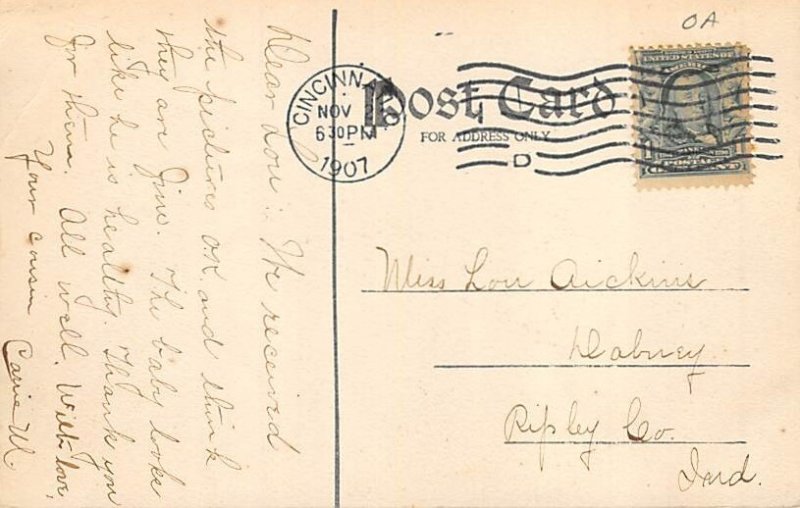 Dear Lou: We received
the pictures OK and think
they are fine. The baby looks
like he is healthy. Thank you
for them. All well. With love,
Your cousin
Carrie M.
OA
CINCINNA
NOV 1
630PM
1907
D
Post Card
FOR ADDRESS ONLY
UNITED STATES OF
POSTAGE
Miss Lou Aickins
Dabney
Ripley Co.
Ind.